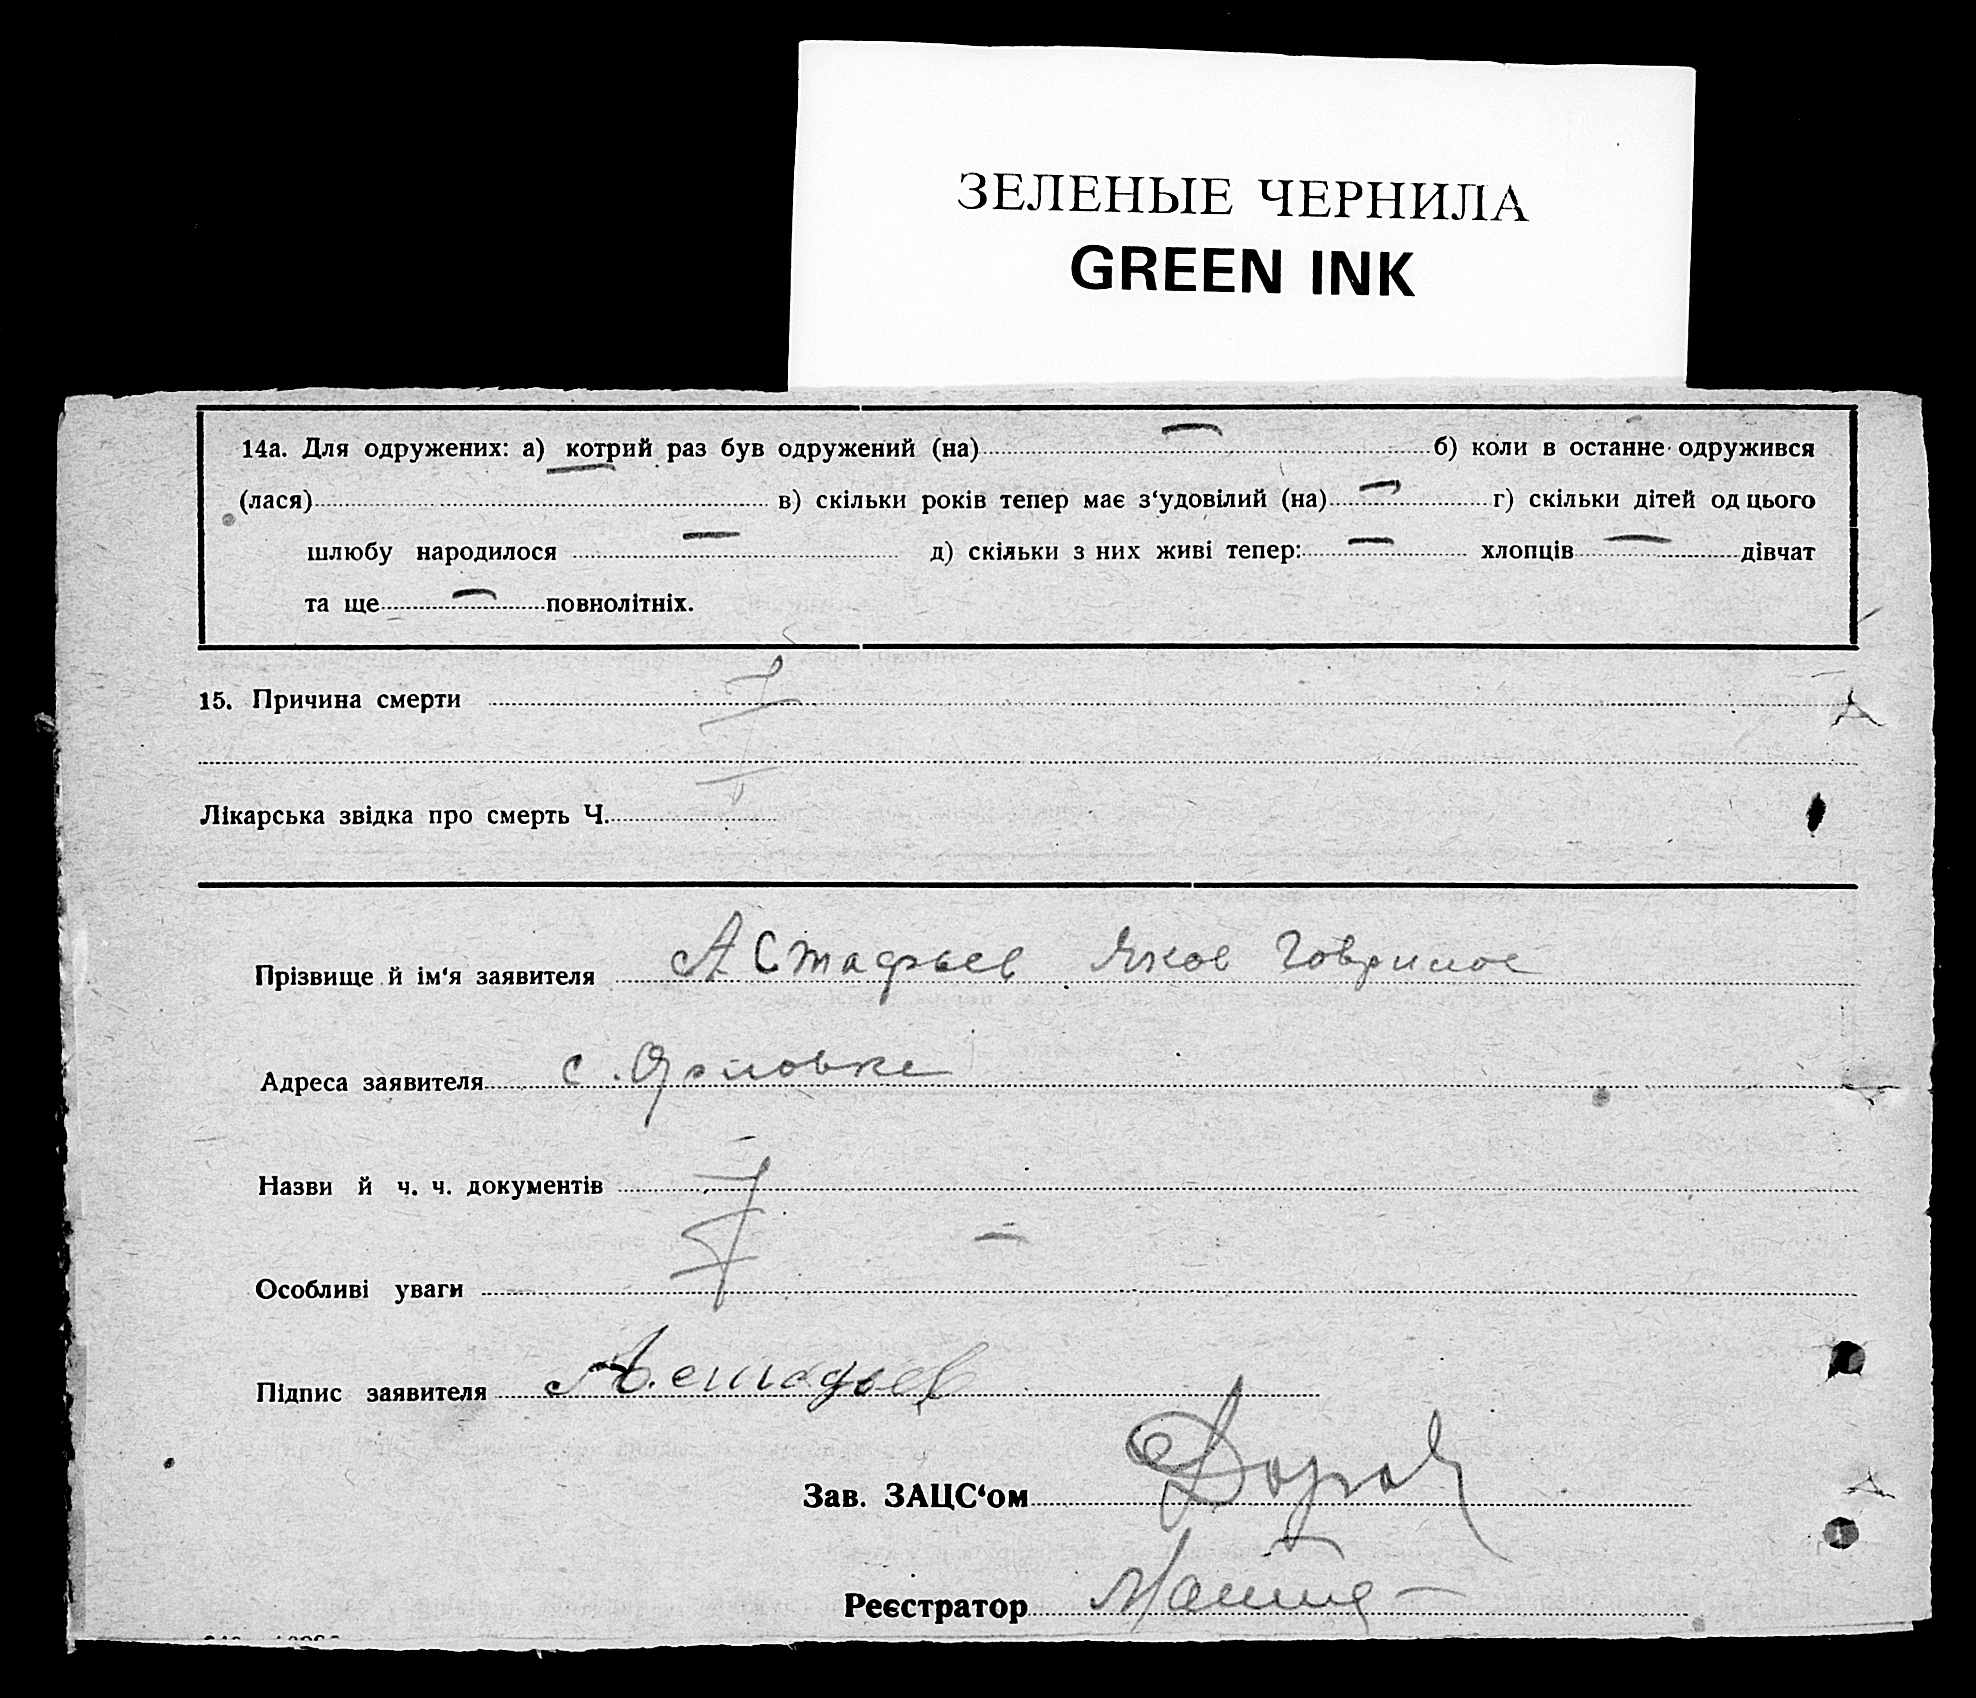 ЗЕЛЕНЫЕ ЧЕРНИЛА
GREEN INK
14а. Для одружених: а) котрий раз був одружений (на) — б) коли в останнє одружився
(лася) — в) скільки років тепер має з‘удовілий (на) — г) скільки дітей од цього
шлюбу народилося — д) скільки з них живі тепер: — хлопців — дівчат
та ще — повнолітніх.
15. Причина смерти
Лікарська звідка про смерть Ч.
Прізвище й ім‘я заявителя Астафьев Яков
Адреса заявителя с. Орловке
Назви й ч. ч. документів
Особливі уваги
Підпис заявителя Астафьев
Зав. ЗАЦС‘ом
Реєстратор